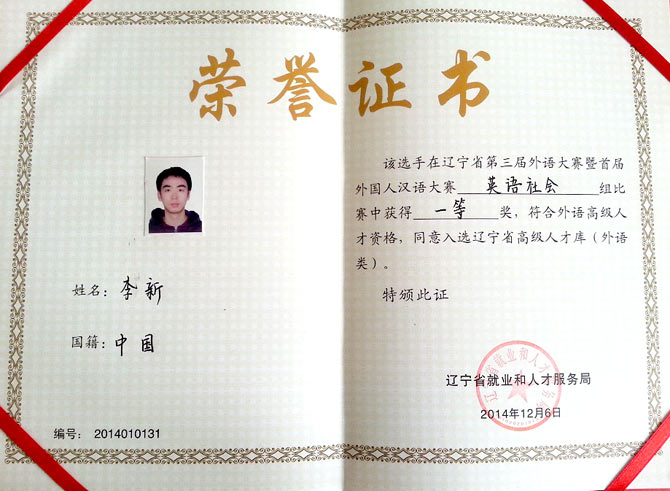 荣誉证书
该选手在辽宁省第三届外语大赛暨首届
外国人汉语大赛 英语社会 组比
赛中获得 一等 奖，符合外语高级人
才资格，同意入选辽宁省高级人才库（外语
类）。
特颁此证
姓名：李新
国籍：中国
辽宁省就业和人才服务局
2014年12月6日
编号： 2014010131
辽宁省就业和人才服务局